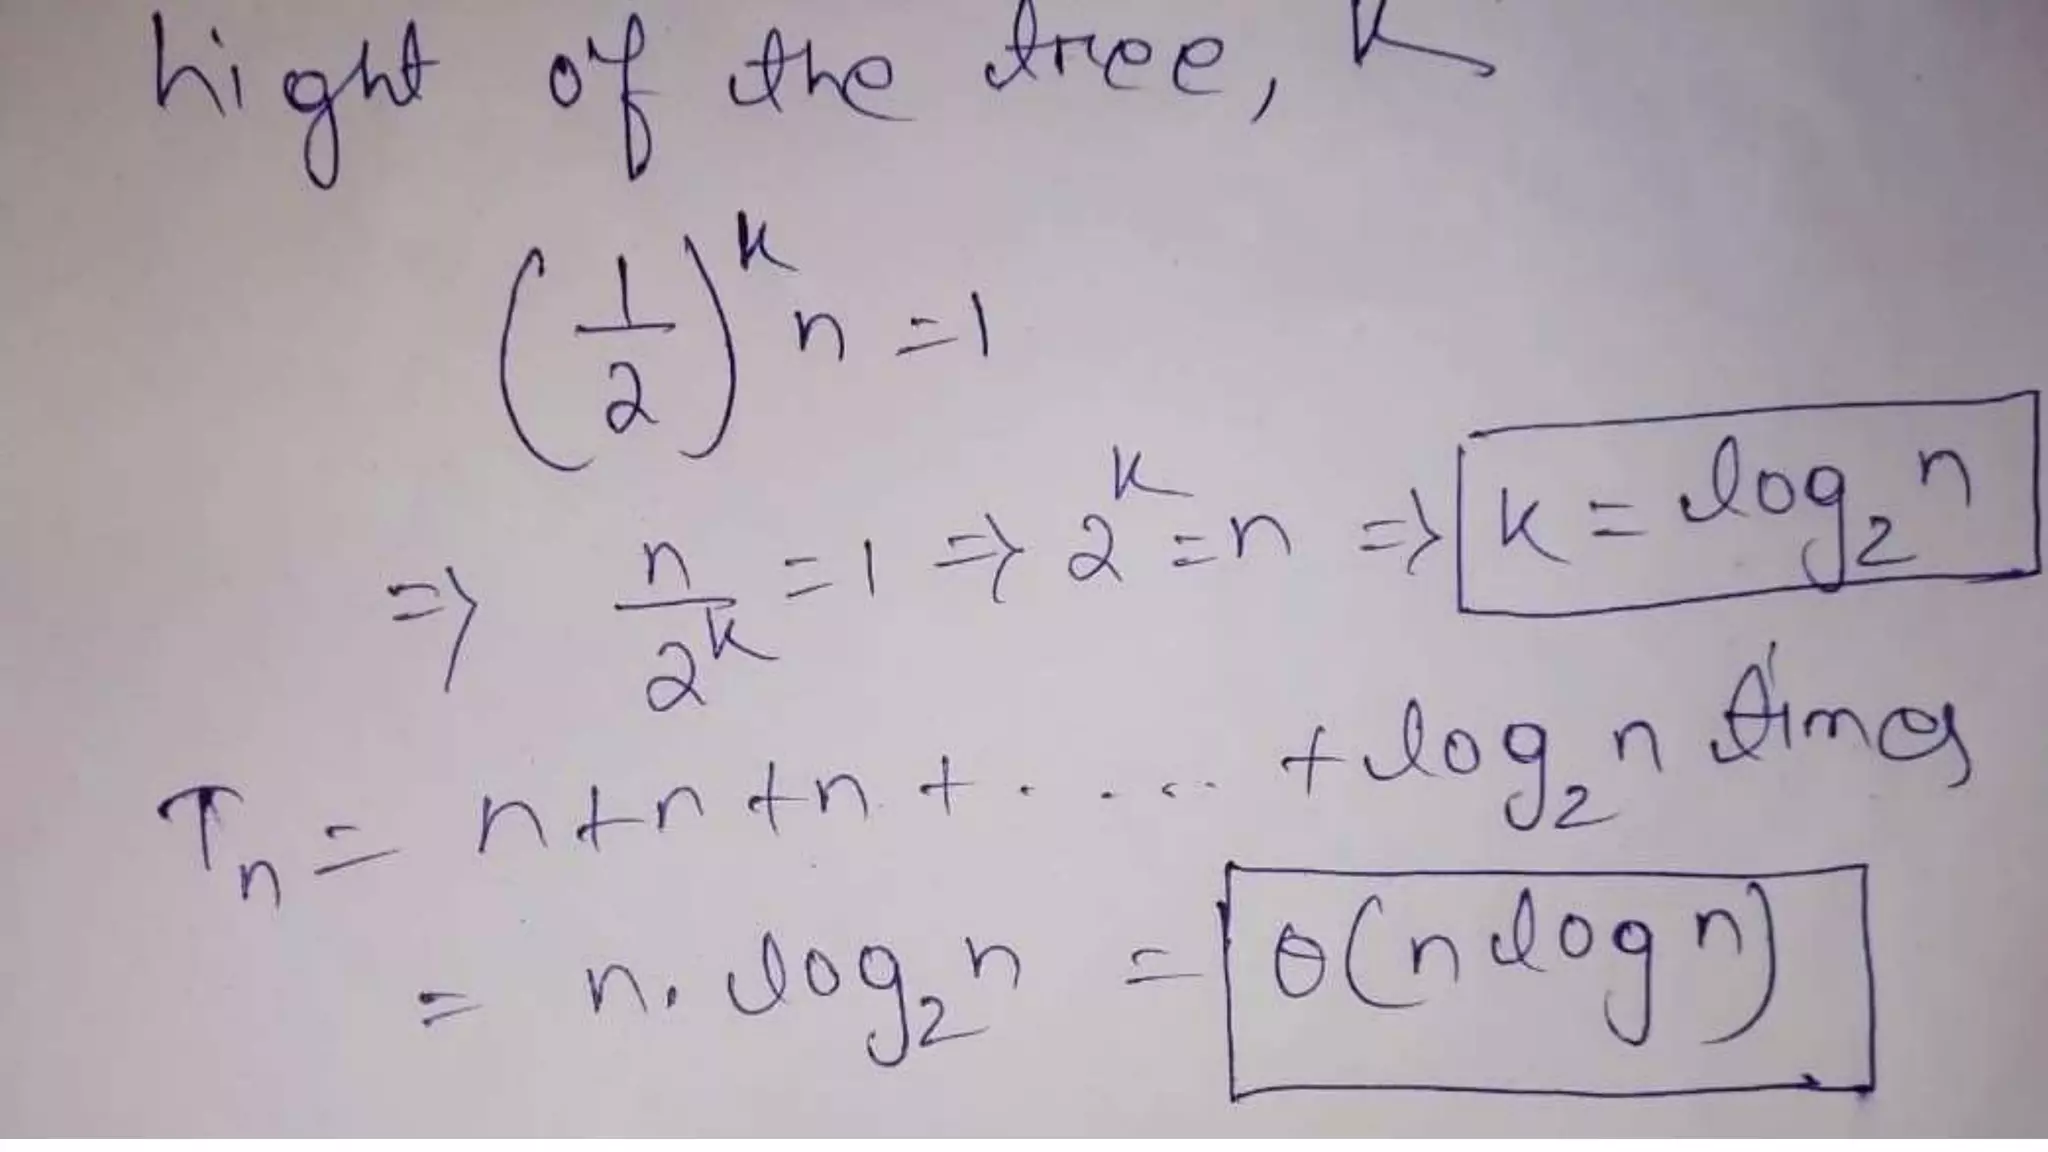 hight of the tree, K
(1/2)^k n = 1
=> n/2^k = 1 => 2^k = n => k = log₂n
Tn = n + n + n + ..... + log₂n times
= n. log₂n = θ(n log n)